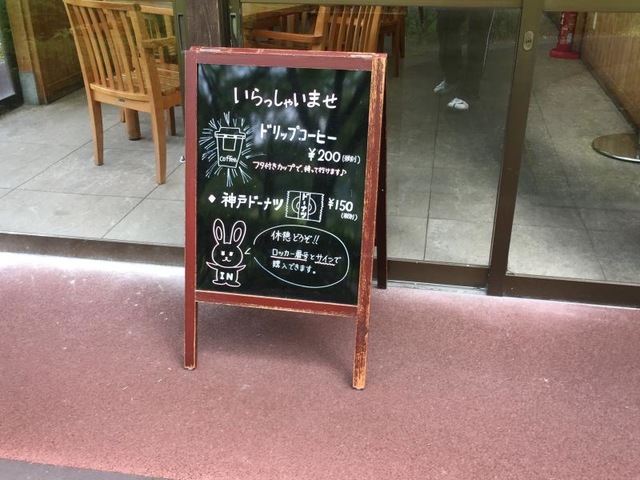 いらっしゃいませ
Coffee
ドリップコーヒー
¥200(税別)
フタ付きカップで、持って行けます♪
◆神戸ドーナツ
ドーナツ
¥150
(税別)
休憩どうぞ!!
ロッカー番号とサインで
購入できます。
IN